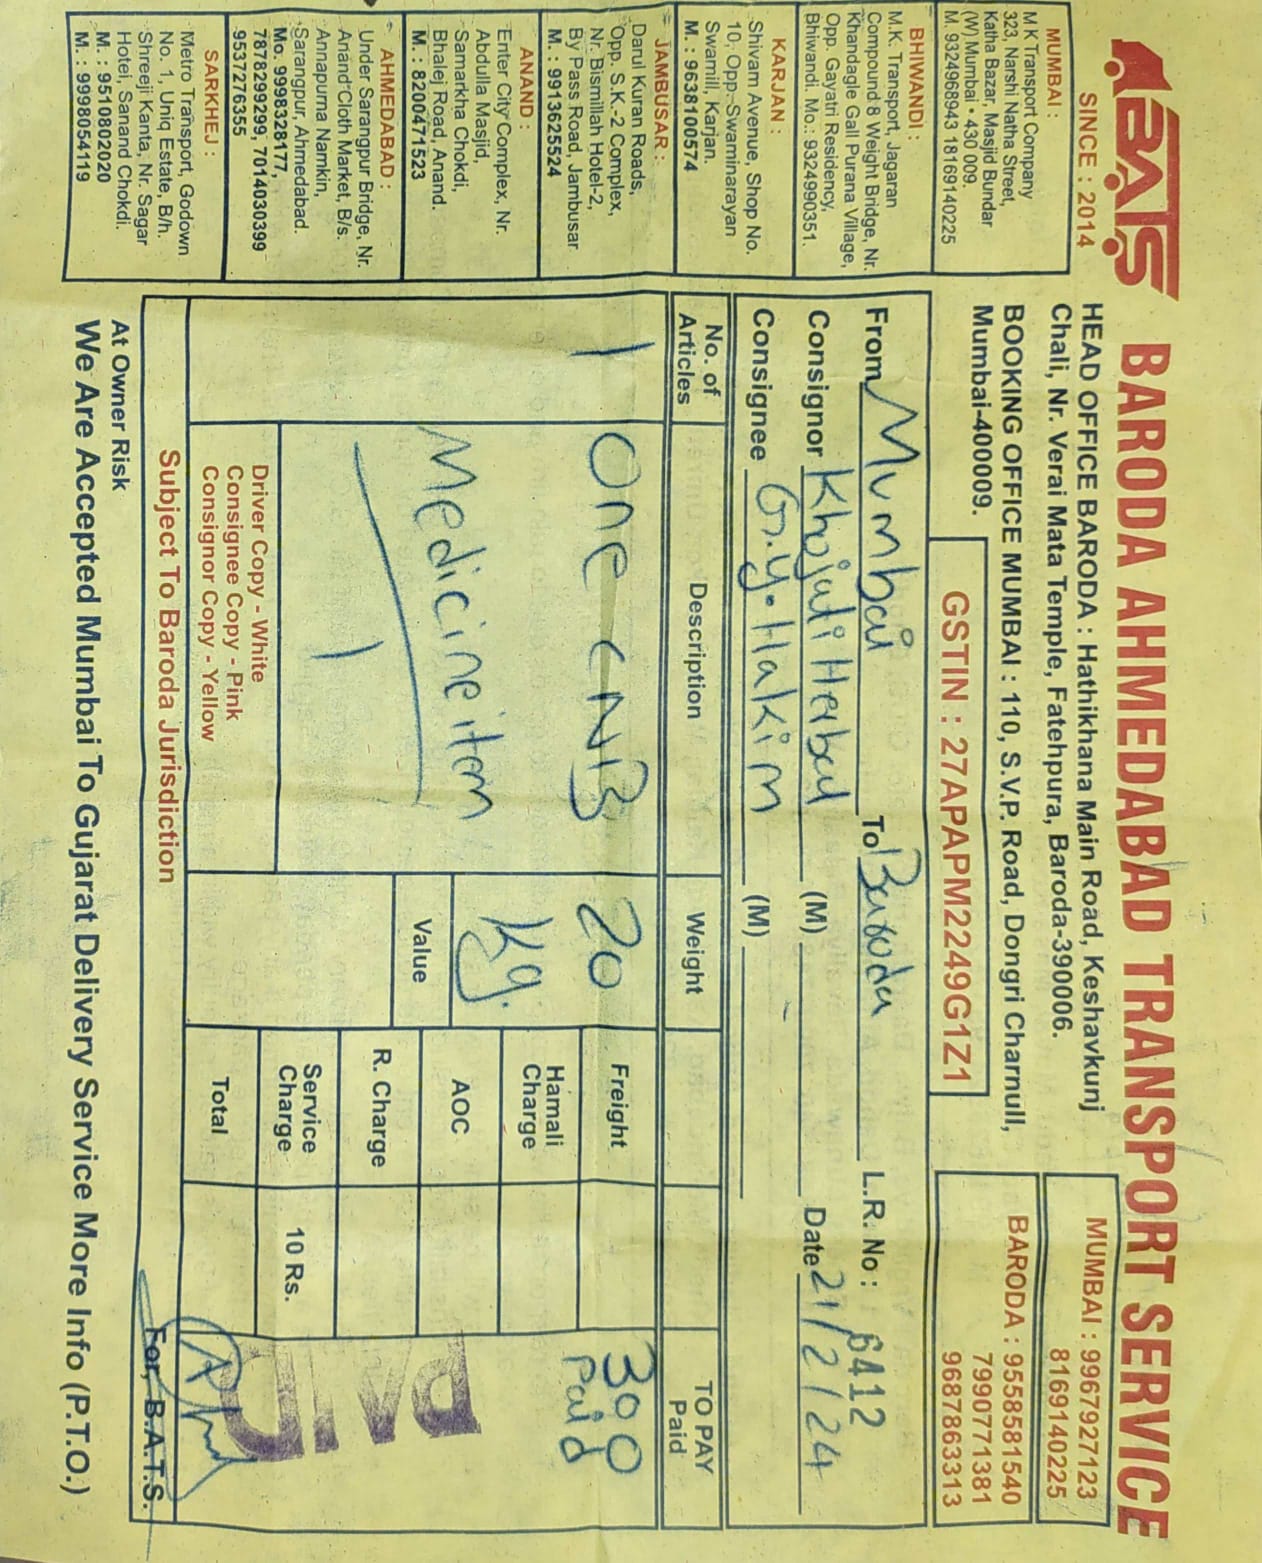 BATS
SINCE : 2014
BARODA AHMEDABAD TRANSPORT SERVICE
HEAD OFFICE BARODA : Hathikhana Main Road, Keshavkunj
Chali, Nr. Verai Mata Temple, Fatehpura, Baroda-390006.
BOOKING OFFICE MUMBAI : 110, S.V.P. Road, Dongri Charnull,
Mumbai-400009.
GSTIN : 27APAPM2249G1Z1
MUMBAI : 9967927123
8169140225
BARODA : 9558581540
7990771381
9687863313
MUMBAI :
M K Transport Company
323, Narshi Natha Street,
Katha Bazar, Masjid Bundar
(W) Mumbai • 430 009.
M. 9324968943 18169140225
BHIWANDI :
M.K. Transport, Jagaran
Compound 8 Weight Bridge, Nr.
Khandagle Gall Purana Village,
Opp. Gayatri Residency,
Bhiwandi. Mo.: 9324990351.
KARJAN :
Shivam Avenue, Shop No.
10, Opp. Swaminarayan
Swamill, Karjan.
M. : 9638100574
JAMBUSAR :
Darul Kuran Roads,
Opp. S.K.-2 Complex,
Nr. Bismillah Hotel-2,
By Pass Road, Jambusar
M. : 9913625524
ANAND :
Enter City Complex, Nr.
Abdulla Masjid,
Samarkha Chokdi,
Bhalej Road, Anand.
M. : 8200471523
AHMEDABAD :
Under Sarangpur Bridge, Nr.
Anand Cloth Market, B/s.
Annapurna Namkin,
Sarangpur, Ahmedabad.
Mo. 9998328177,
7878299299, 7014030399
9537276355
SARKHEJ :
Metro Transport, Godown
No. 1, Uniq Estate, B/h.
Shreeji Kanta, Nr. Sagar
Hotel, Sanand Chokdi.
M. : 9510802020
M. : 9998054119
From Mumbai To Baroda L.R. No : 6412
Consignor Khojati Herbal (M) Date 21/2/24
Consignee G.y. Hakim (M)
No. of Articles Description Weight TO PAY Paid
1 One CNB 20 Kg. Freight 300 Paid
Medicine item Hamali Charge
AOC
Value R. Charge
1 Service Charge 10 Rs.
Total
PAID
Driver Copy - White
Consignee Copy - Pink
Consignor Copy - Yellow
Subject To Baroda Jurisdiction For, B.A.T.S.
At Owner Risk
We Are Accepted Mumbai To Gujarat Delivery Service More Info (P.T.O.)